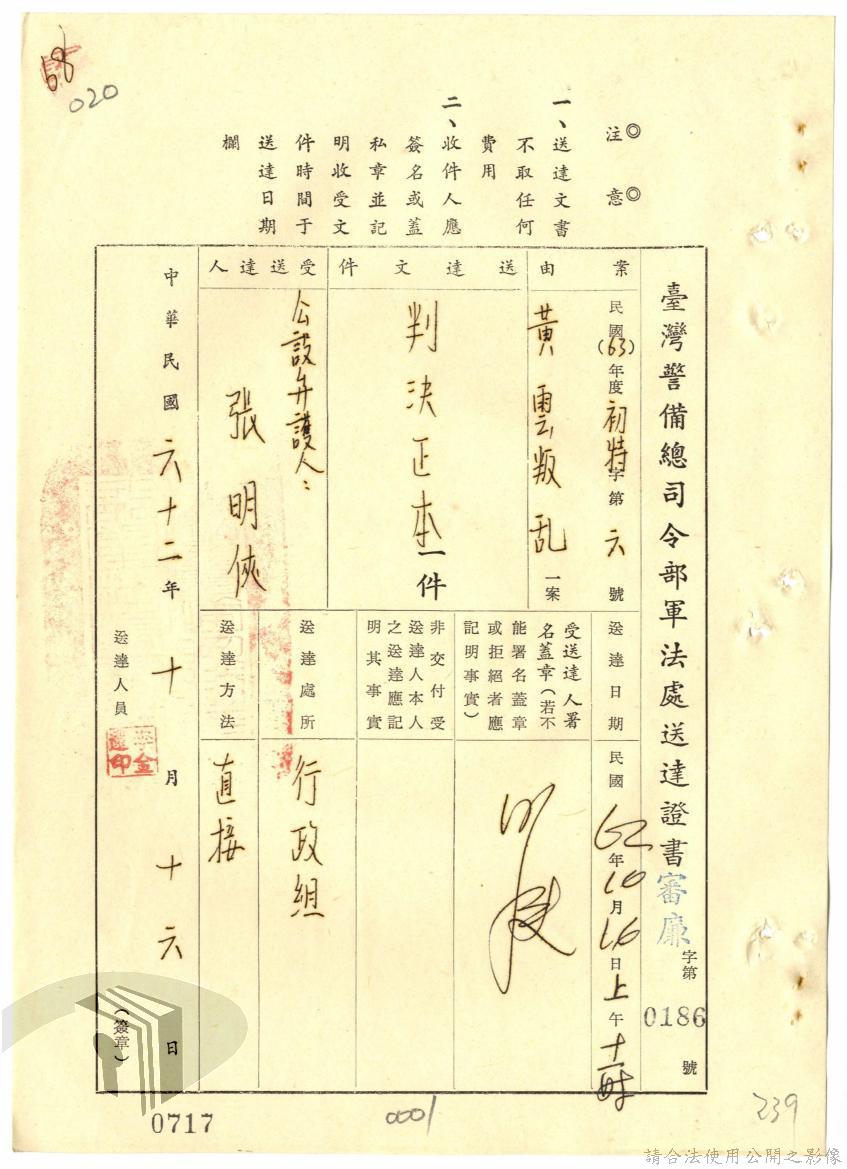 68
020
◎注意◎
一、送達文書
不取任何
費用
二、收件人應
簽名或蓋
私章並記
明收受文
件時間于
送達日期
欄
臺灣警備總司令部軍法處送達證書審廉字第0186號
案由
民國(63)年度初特字第六號
黃雲叛乱一案
送達文件
判決正本一件
受送達人
公設弁護人：
張明俠
送達日期
民國62年10月16日上午十一時
受送達人署
名蓋章(若不
能署名蓋章
或拒絕者應
記明事實)
明俠
非交付受
送達人本人
之送達應記
明其事實
送達處所
行政組
送達方法
直接
中華民國六十二年十月十六日
送達人員
(簽章)
0717
0001
239
請合法使用公開之影像